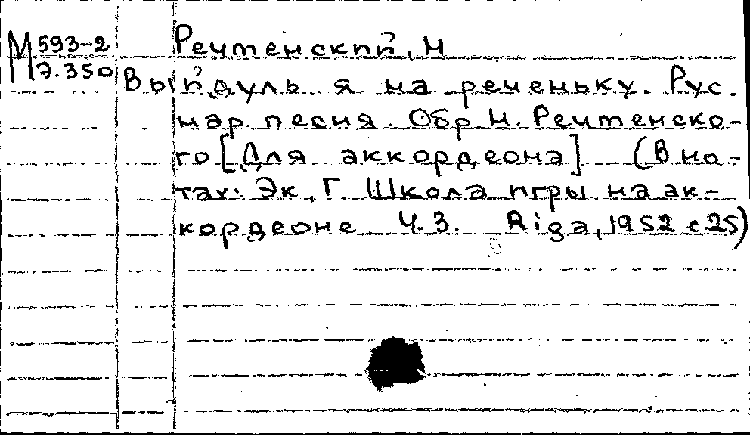 М 593-2 Речменский, Н
7.350 Выйдуль я на реченьку. Рус.
нар. песня. Обр. Н. Речменско-
го [Для аккордеона] (В но-
тах: Эк, Г. Школа игры на ак-
кордеоне Ч.3. Riga, 1952 с 25)